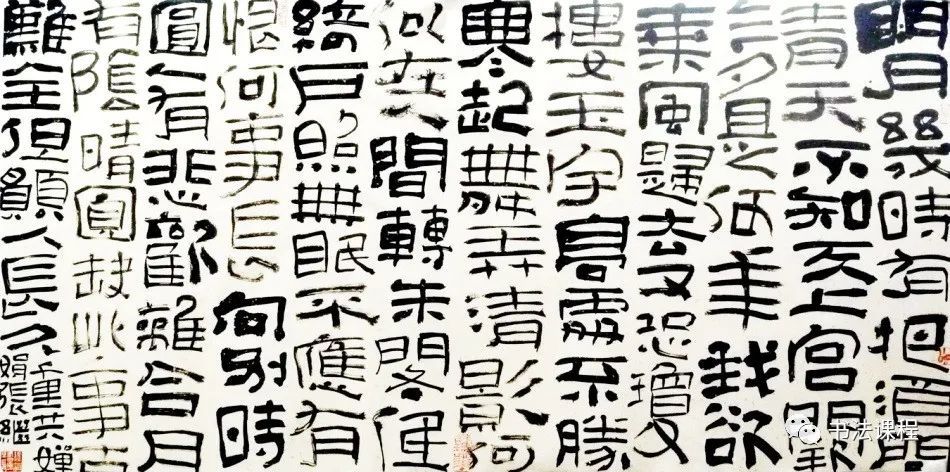 明月幾時有把酒問
青天不知天上宮闕
今夕是何年我欲
乘風歸去又恐瓊
樓玉宇高處不勝
寒起舞弄清影何
似在人間轉朱閣低
綺戶照無眠不應有
恨何事長向別時
圓人有悲歡離合月
有陰晴圓缺此事古
難全但願人長久千里共嬋
娟張繼
书法课程